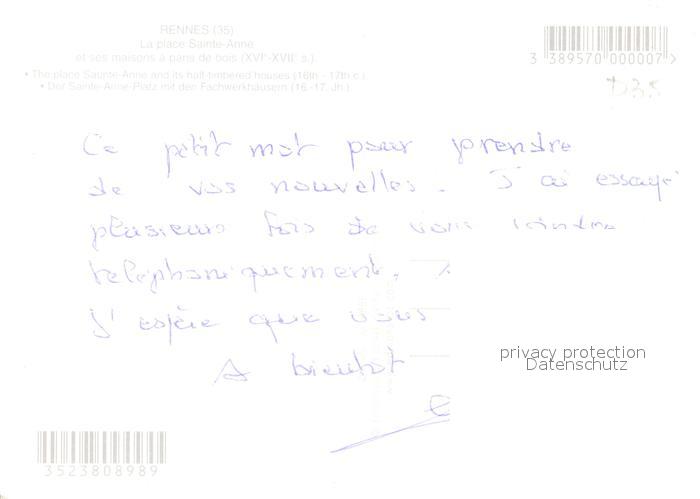 RENNES (35)
La place Sainte-Anne
et ses maisons à pans de bois (XVIe-XVIIe s.).
• The place Saunte-Anne and its half-timbered houses (16th - 17th c.)
• Der Sainte-Anne-Platz mit den Fachwerkhäusern (16.-17. Jh.)
3 389570 000007
D35
Ce petit mot pour prendre
de vos nouvelles. J'ai essayé
plusieurs fois de vous joindre
telephoniquement.
J'espère que vous
A bientot
privacy protection
Datenschutz
3523808989